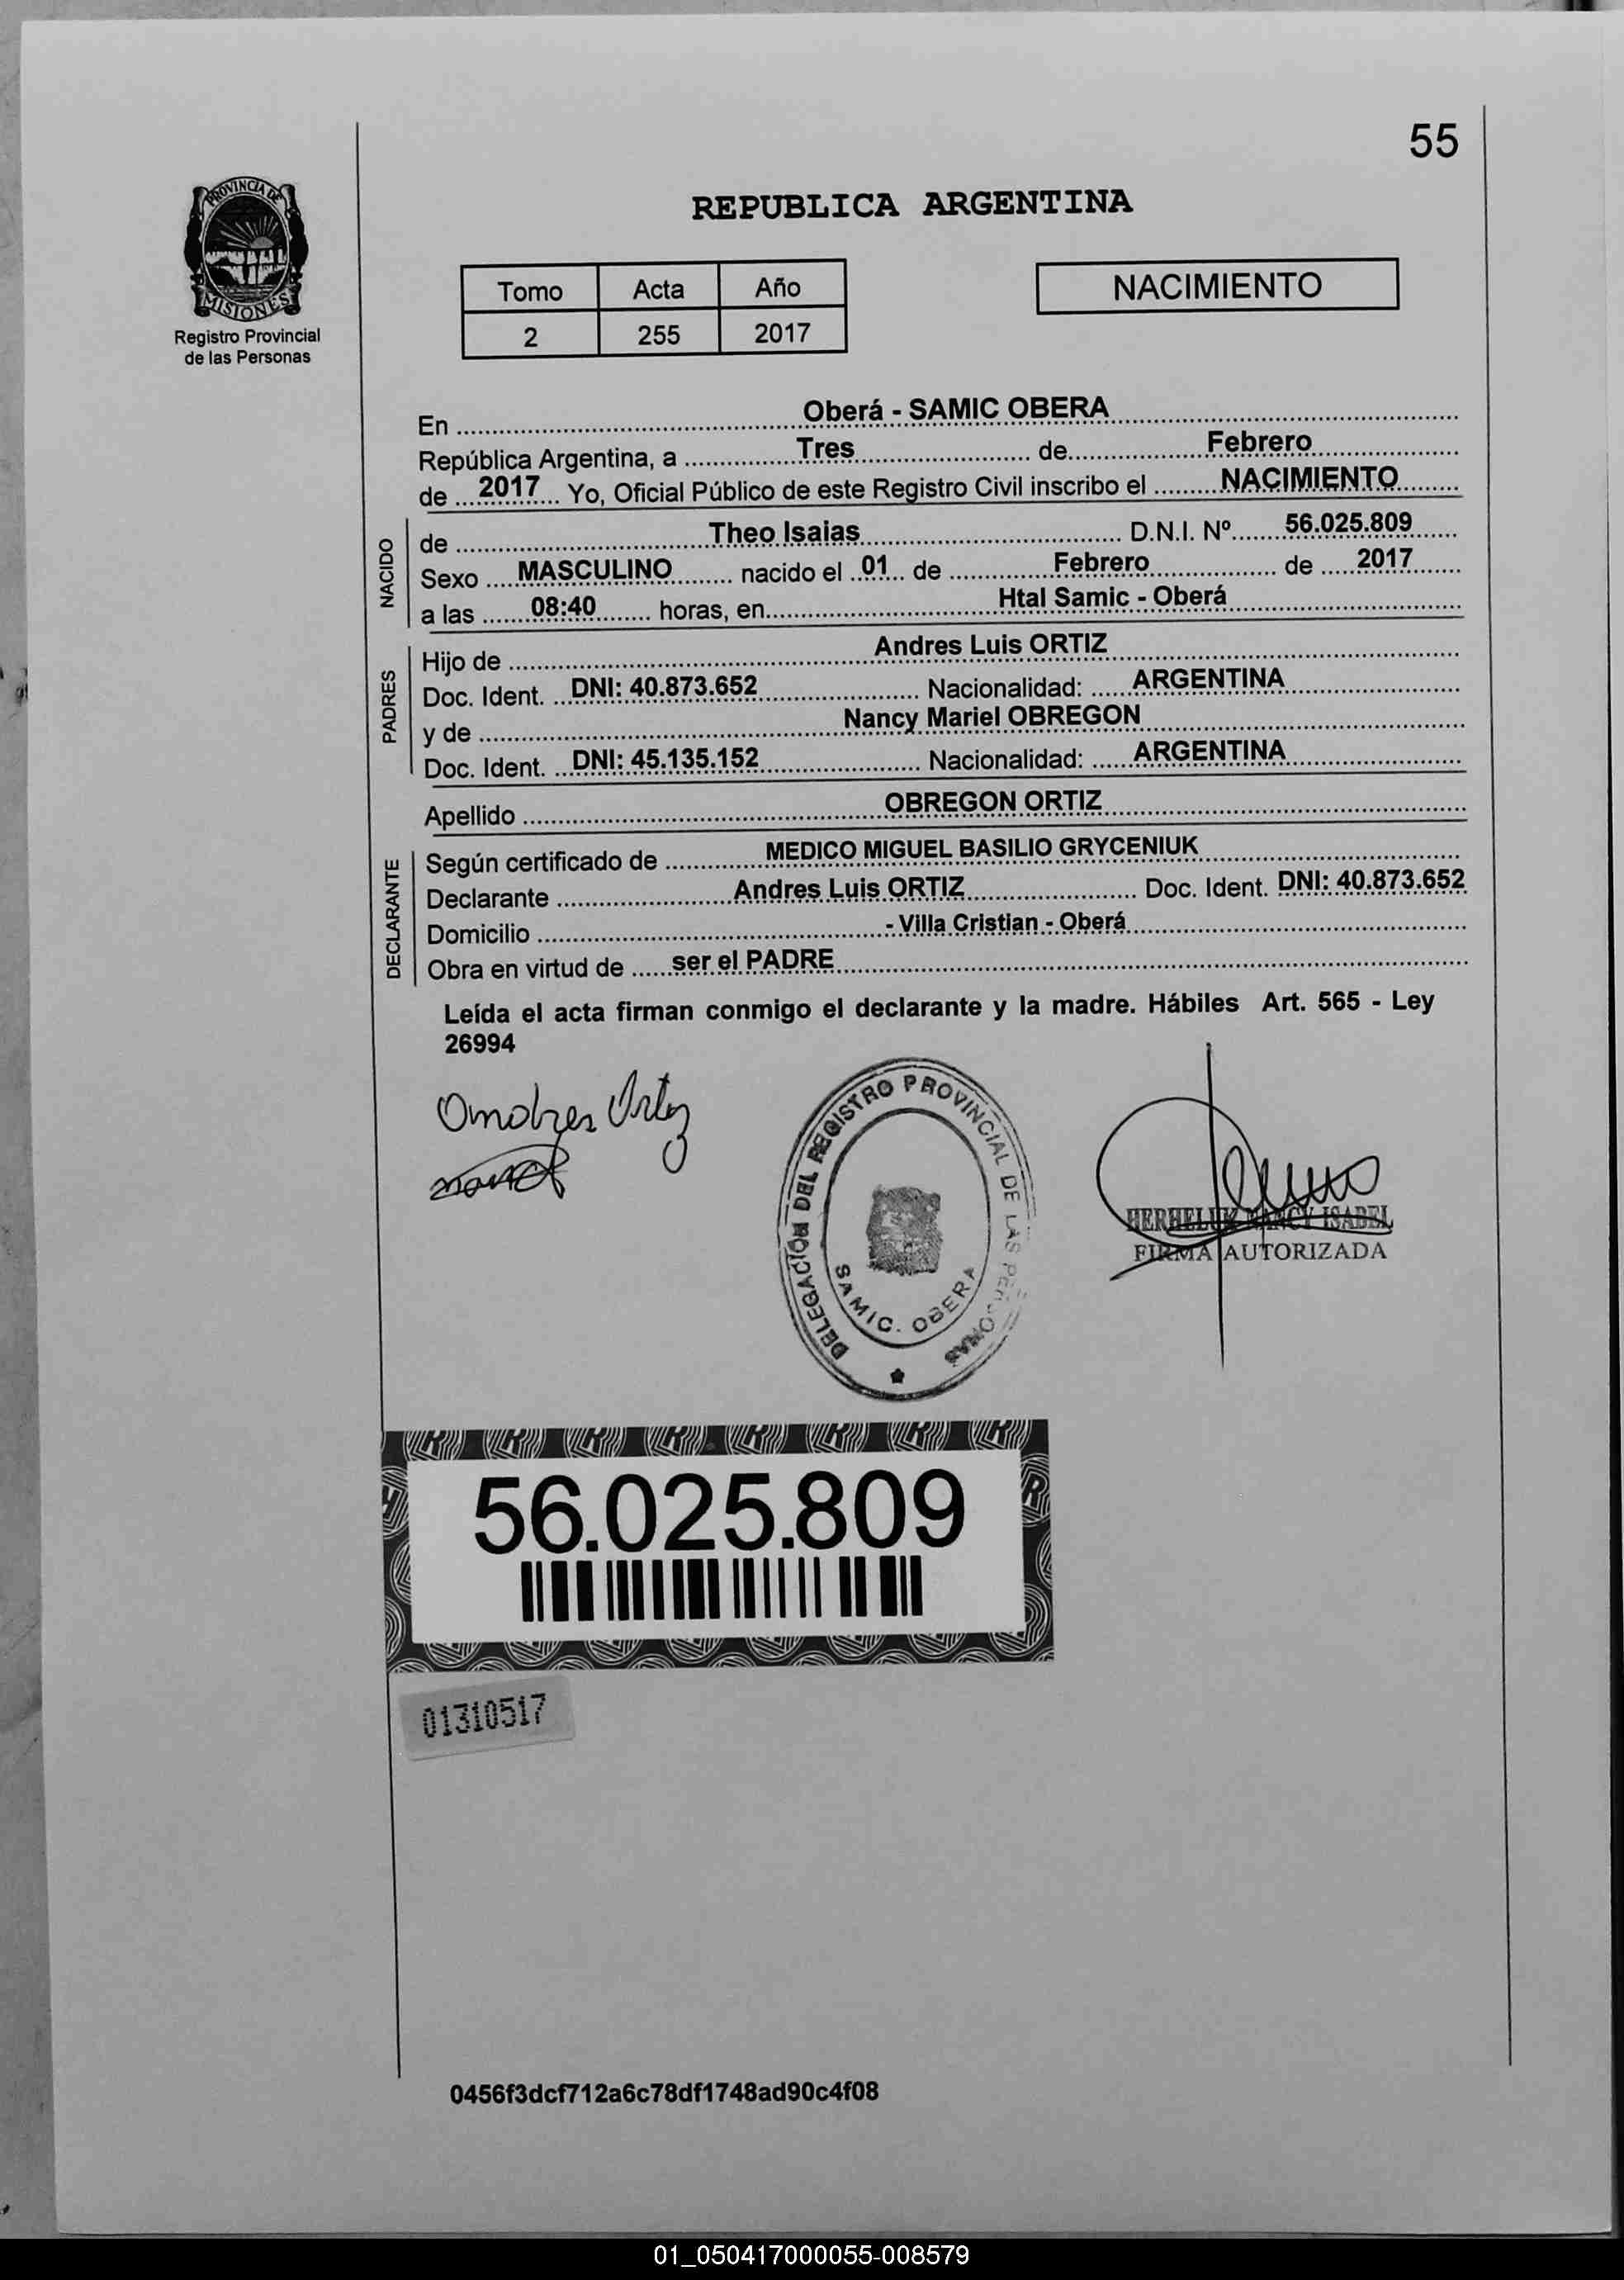 55
PROVINCIA DE
MISIONES
Registro Provincial
de las Personas
REPUBLICA ARGENTINA
Tomo Acta Año
2 255 2017
NACIMIENTO
En Oberá - SAMIC OBERA
República Argentina, a Tres de Febrero
de 2017 Yo, Oficial Público de este Registro Civil inscribo el NACIMIENTO
NACIDO
de Theo Isaias D.N.I. Nº 56.025.809
Sexo MASCULINO nacido el 01 de Febrero de 2017
a las 08:40 horas, en Htal Samic - Oberá
PADRES
Hijo de Andres Luis ORTIZ
Doc. Ident. DNI: 40.873.652 Nacionalidad: ARGENTINA
y de Nancy Mariel OBREGON
Doc. Ident. DNI: 45.135.152 Nacionalidad: ARGENTINA
Apellido OBREGON ORTIZ
DECLARANTE
Según certificado de MEDICO MIGUEL BASILIO GRYCENIUK
Declarante Andres Luis ORTIZ Doc. Ident. DNI: 40.873.652
Domicilio - Villa Cristian - Oberá
Obra en virtud de ser el PADRE
Leída el acta firman conmigo el declarante y la madre. Hábiles Art. 565 - Ley
26994
Andres Ortiz
DELEGACIÓN DEL REGISTRO PROVINCIAL DE LAS PERSONAS
SAMIC. OBERA
NANCY ISABEL
FIRMA AUTORIZADA
56.025.809
01310517
0456f3dcf712a6c78df1748ad90c4f08
01_050417000055-008579